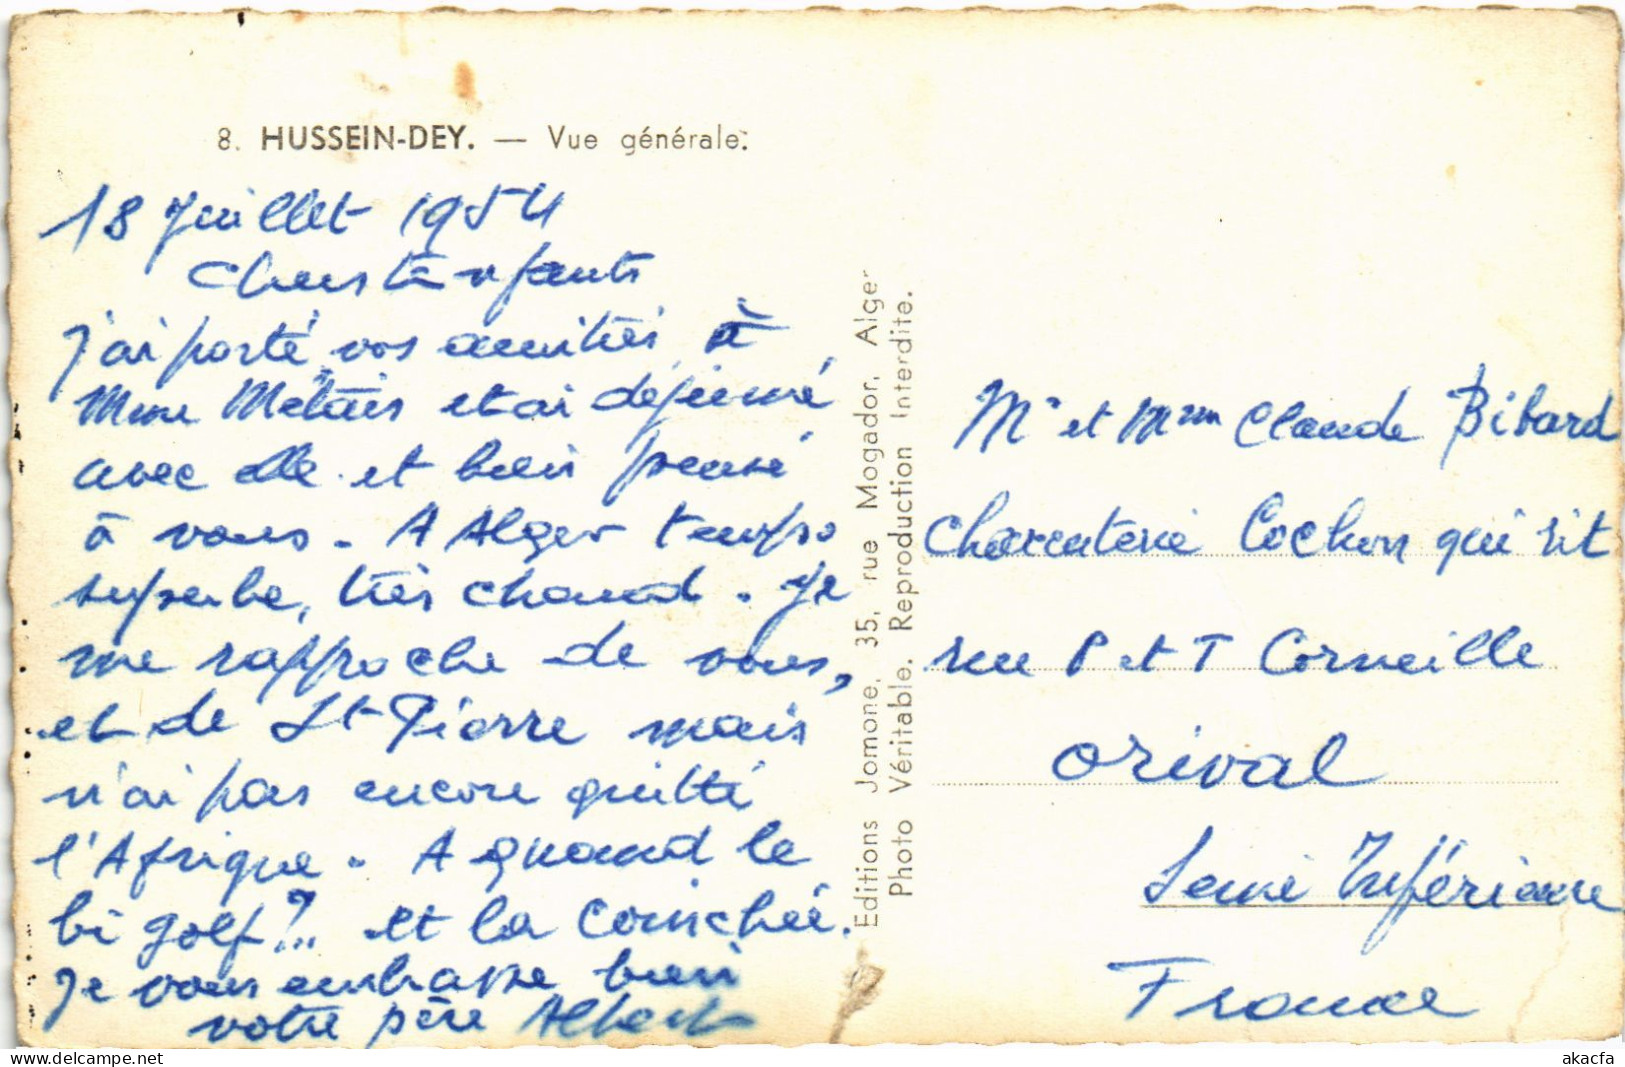 8. HUSSEIN-DEY. — Vue générale.
18 Juillet 1954
Chers enfants
j'ai porté vos amitiés à
Mme Métais et ai déjeuné
avec elle et bien pensé
à vous - A Alger temps
superbe, très chaud. Je
me rapproche de vous,
et de St Pierre mais
n'ai pas encore quitté
l'Afrique - A quand le
bi golf?.. et la coinchée.
Je vous embrasse bien
votre père Albert
Editions Jomone, 35, rue Mogador, Alger
Photo Véritable. Reproduction Interdite.
Mr et Mme Claude Bibard
Charcuterie Cochon qui rit
rue P et T Corneille
Orival
Seine Inférieure
France
akacfa